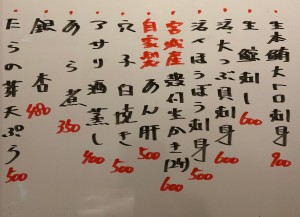 生本鮪大トロ刺身 900
生鯨刺し 600
活大つぶ貝刺身 600
活ほうぼう刺身 500
宮城産殻付生かき(2ケ) 600
自家製あん肝 500
穴子白焼き 500
アサリ酒蒸し 400
あら煮 350
銀杏 480
たらの芽天ぷら 500